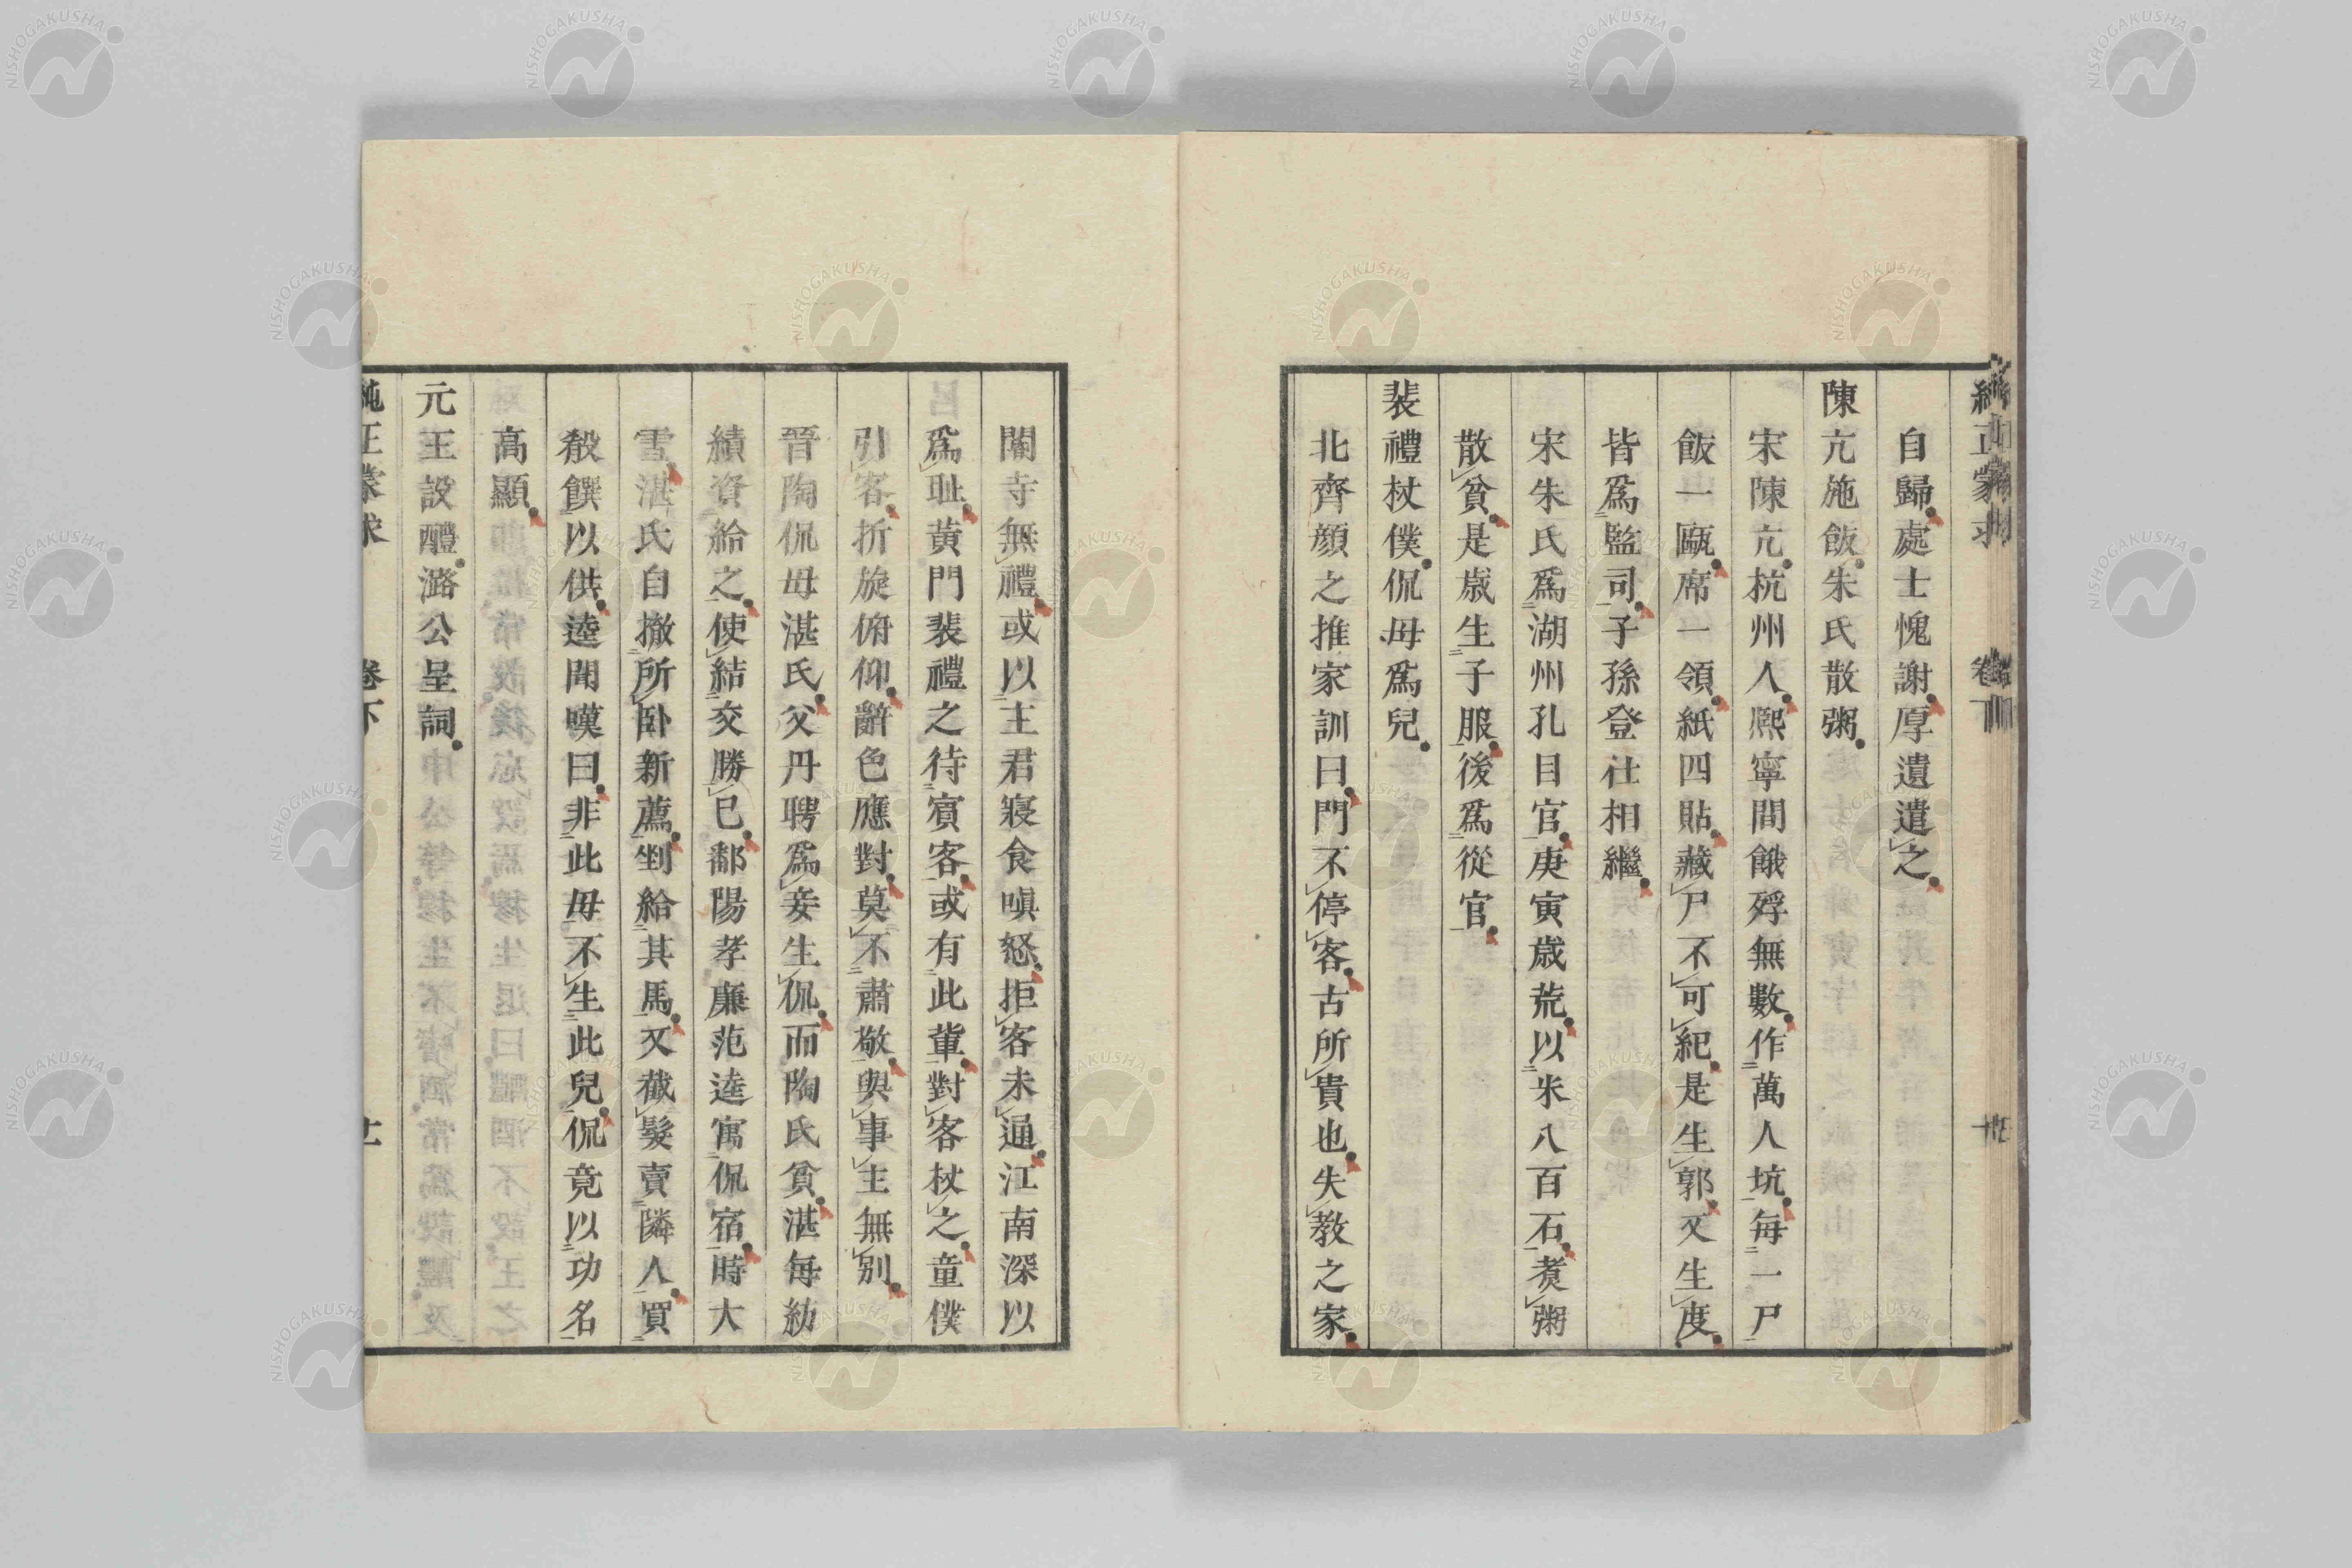 自歸處士愧謝厚遺遣之
陳亢施飯朱氏散粥
宋陳亢杭州人熈寧間餓殍無數作萬人坑每一尸
飯一甌席一領紙四貼藏尸不可紀是生郭又生度
皆爲監司子孫登仕相繼
宋朱氏爲湖州孔目官庚寅歳荒以米八百石煑粥
散貧是歳生子服後爲從官
裴禮杖僕侃母爲兒
北齊顔之推家訓曰門不停客古所貴也失教之家
閽寺無禮或以主君寢食嗔怒拒客未通江南深以
爲耻黄門裴禮之待賓客或有此軰對客杖之童僕
引客折旋俯仰辭色應對莫不肅敬與事主無别
晉陶侃母湛氏父丹聘爲妾生侃而陶氏貧湛每紡
績資給之使結交勝已鄱陽孝廉范逵寓侃宿時大
雪湛氏自撤所卧新薦剉給其馬又截髮賣隣人買
殽饌以供逵聞嘆曰非此毋不生此兒侃竟以功名
高顯
元王設醴潞公呈詞
純正蒙求 卷下 十一
NISHOGAKUSHA